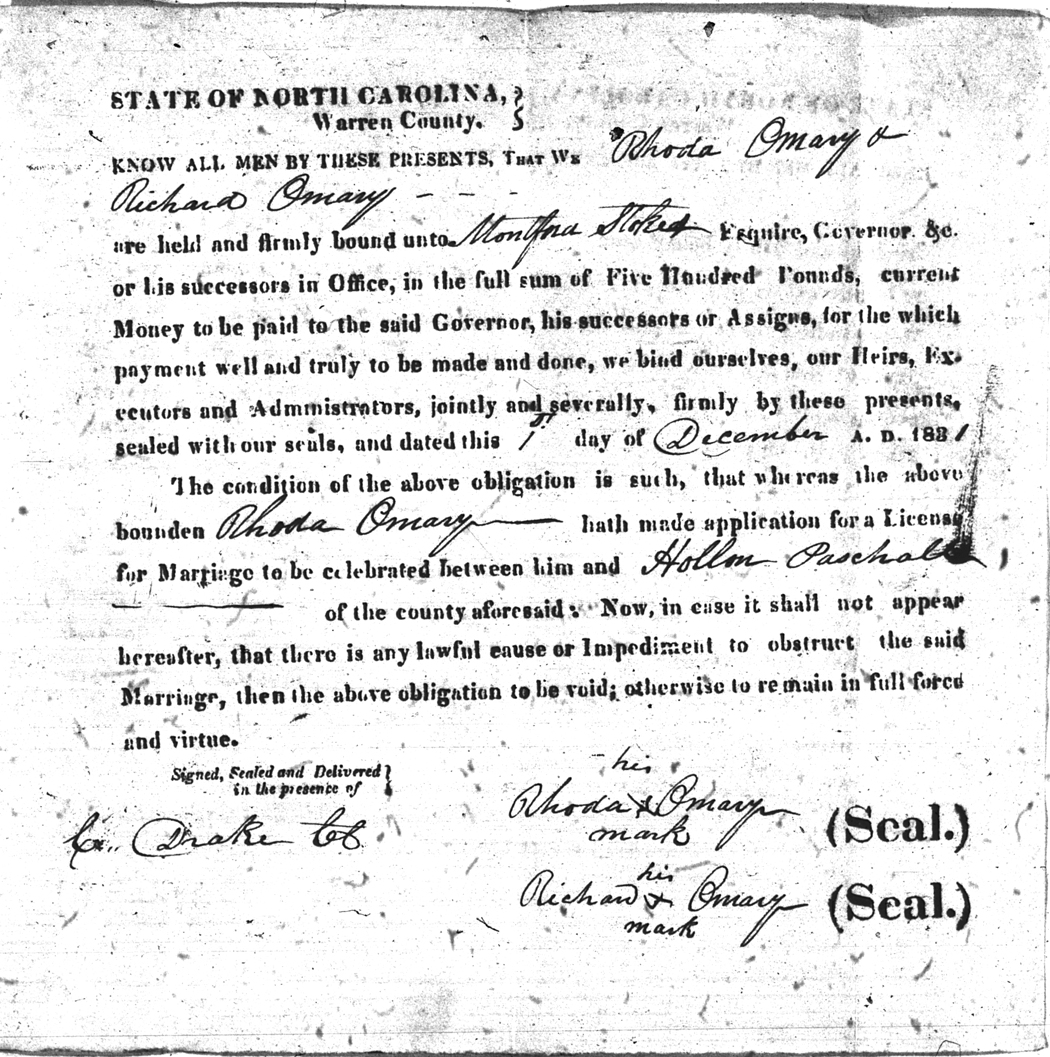 STATE OF NORTH CAROLINA,
Warren County.
KNOW ALL MEN BY THESE PRESENTS, THAT WE Rhoda Omary &
Richard Omary - - -
are held and firmly bound unto Montford Stokes Esquire, Governor. &c.
or his successors in Office, in the full sum of Five Hundred Pounds, current
Money to be paid to the said Governor, his successors or Assigns, for the which
payment well and truly to be made and done, we bind ourselves, our Heirs, Ex-
ecutors and Administrators, jointly and severally, firmly by these presents,
sealed with our seals, and dated this 1st day of December A. D. 1831
The condition of the above obligation is such, that whereas the above
bounden Rhoda Omary hath made application for a License
for Marriage to be celebrated between him and Hollon Paschall,
of the county aforesaid: Now, in case it shall not appear
hereafter, that there is any lawful cause or Impediment to obstruct the said
Marriage, then the above obligation to be void; otherwise to remain in full force
and virtue.
Signed, Sealed and Delivered
in the presence of
Drake
his
Rhoda x Omary (Seal.)
mark
his
Richard x Omary (Seal.)
mark